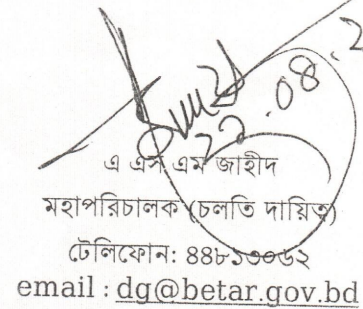 ২২.০৪.২
এ এস এম জাহীদ
মহাপরিচালক (চলতি দায়িত্ব)
টেলিফোন: ৪৪৮১৩০৬২
email : dg@betar.gov.bd